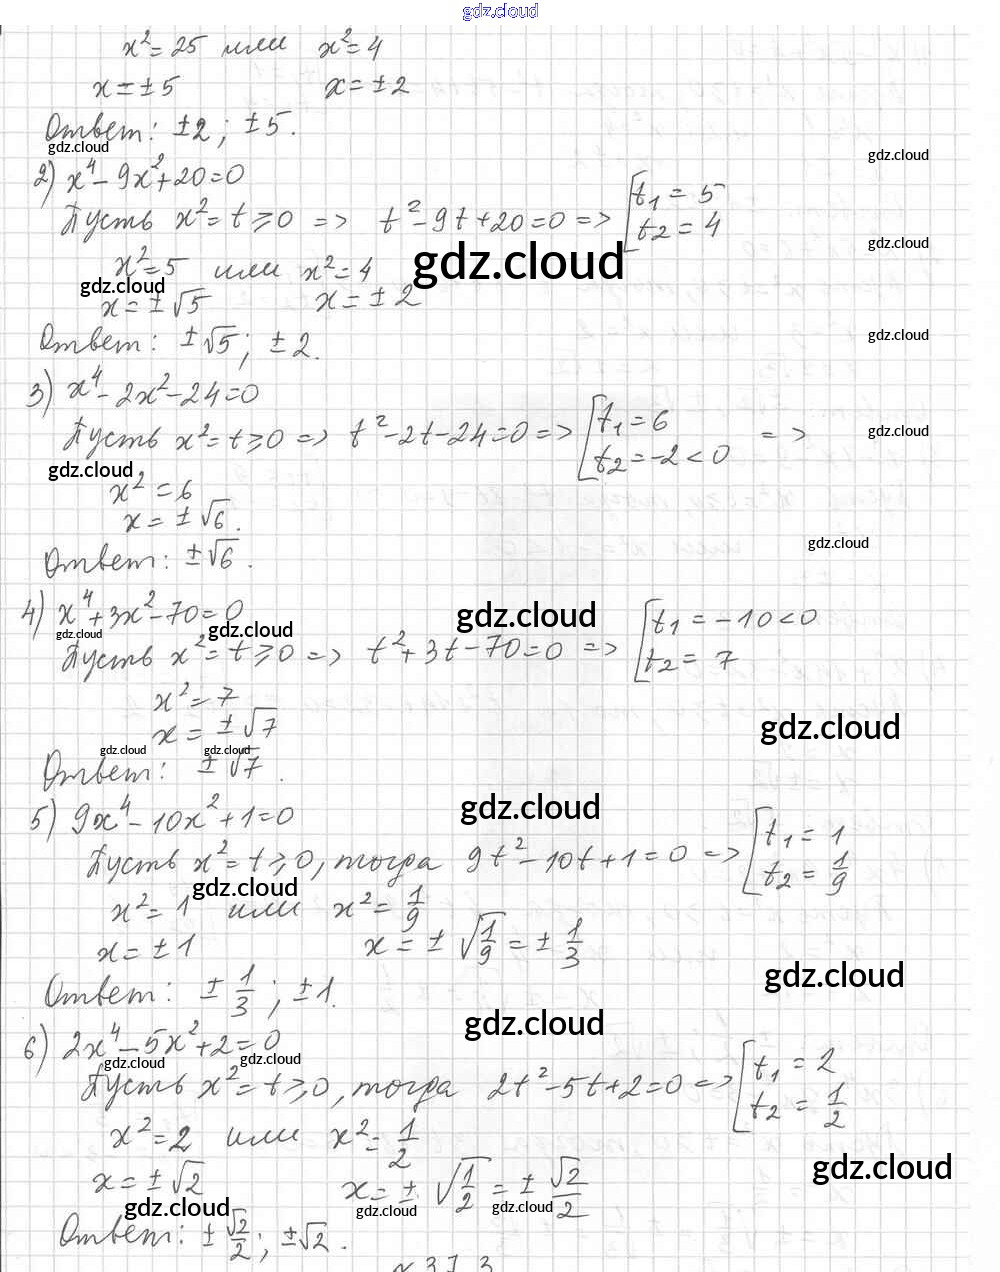 gdz.cloud
x² = 25 или x² = 4
x = ± 5 x = ± 2
Ответ: ±2; ±5.
gdz.cloud gdz.cloud
2) x⁴ - 9x² + 20 = 0
Пусть x² = t ⩾ 0 => t² - 9t + 20 = 0 => [t₁ = 5
t₂ = 4
gdz.cloud gdz.cloud
x² = 5 или x² = 4
gdz.cloud
x = ± √5 x = ± 2
Ответ: ± √5; ± 2.
gdz.cloud
3) x⁴ - 2x² - 24 = 0
Пусть x² = t ⩾ 0 => t² - 2t - 24 = 0 => [t₁ = 6 =>
t₂ = -2 < 0
gdz.cloud gdz.cloud
x² = 6
x = ± √6.
Ответ: ± √6.
gdz.cloud
4) x⁴ + 3x² - 70 = 0
gdz.cloud gdz.cloud gdz.cloud
Пусть x² = t ⩾ 0 => t² + 3t - 70 = 0 => [t₁ = -10 < 0
t₂ = 7
x² = 7
x = ± √7
gdz.cloud
gdz.cloud gdz.cloud
Ответ: ± √7.
5) 9x⁴ - 10x² + 1 = 0
gdz.cloud
Пусть x² = t ⩾ 0, тогда 9t² - 10t + 1 = 0 => [t₁ = 1
t₂ = 1/9
gdz.cloud
x² = 1 или x² = 1/9
x = ± 1 x = ± √(1/9) = ± 1/3
gdz.cloud
Ответ: ± 1/3; ± 1.
gdz.cloud
6) 2x⁴ - 5x² + 2 = 0
gdz.cloud gdz.cloud
Пусть x² = t ⩾ 0, тогда 2t² - 5t + 2 = 0 => [t₁ = 2
t₂ = 1/2
x² = 2 или x² = 1/2
gdz.cloud
x = ± √2 x = ± √(1/2) = ± √2/2
gdz.cloud gdz.cloud gdz.cloud
Ответ: ± √2/2; ± √2.